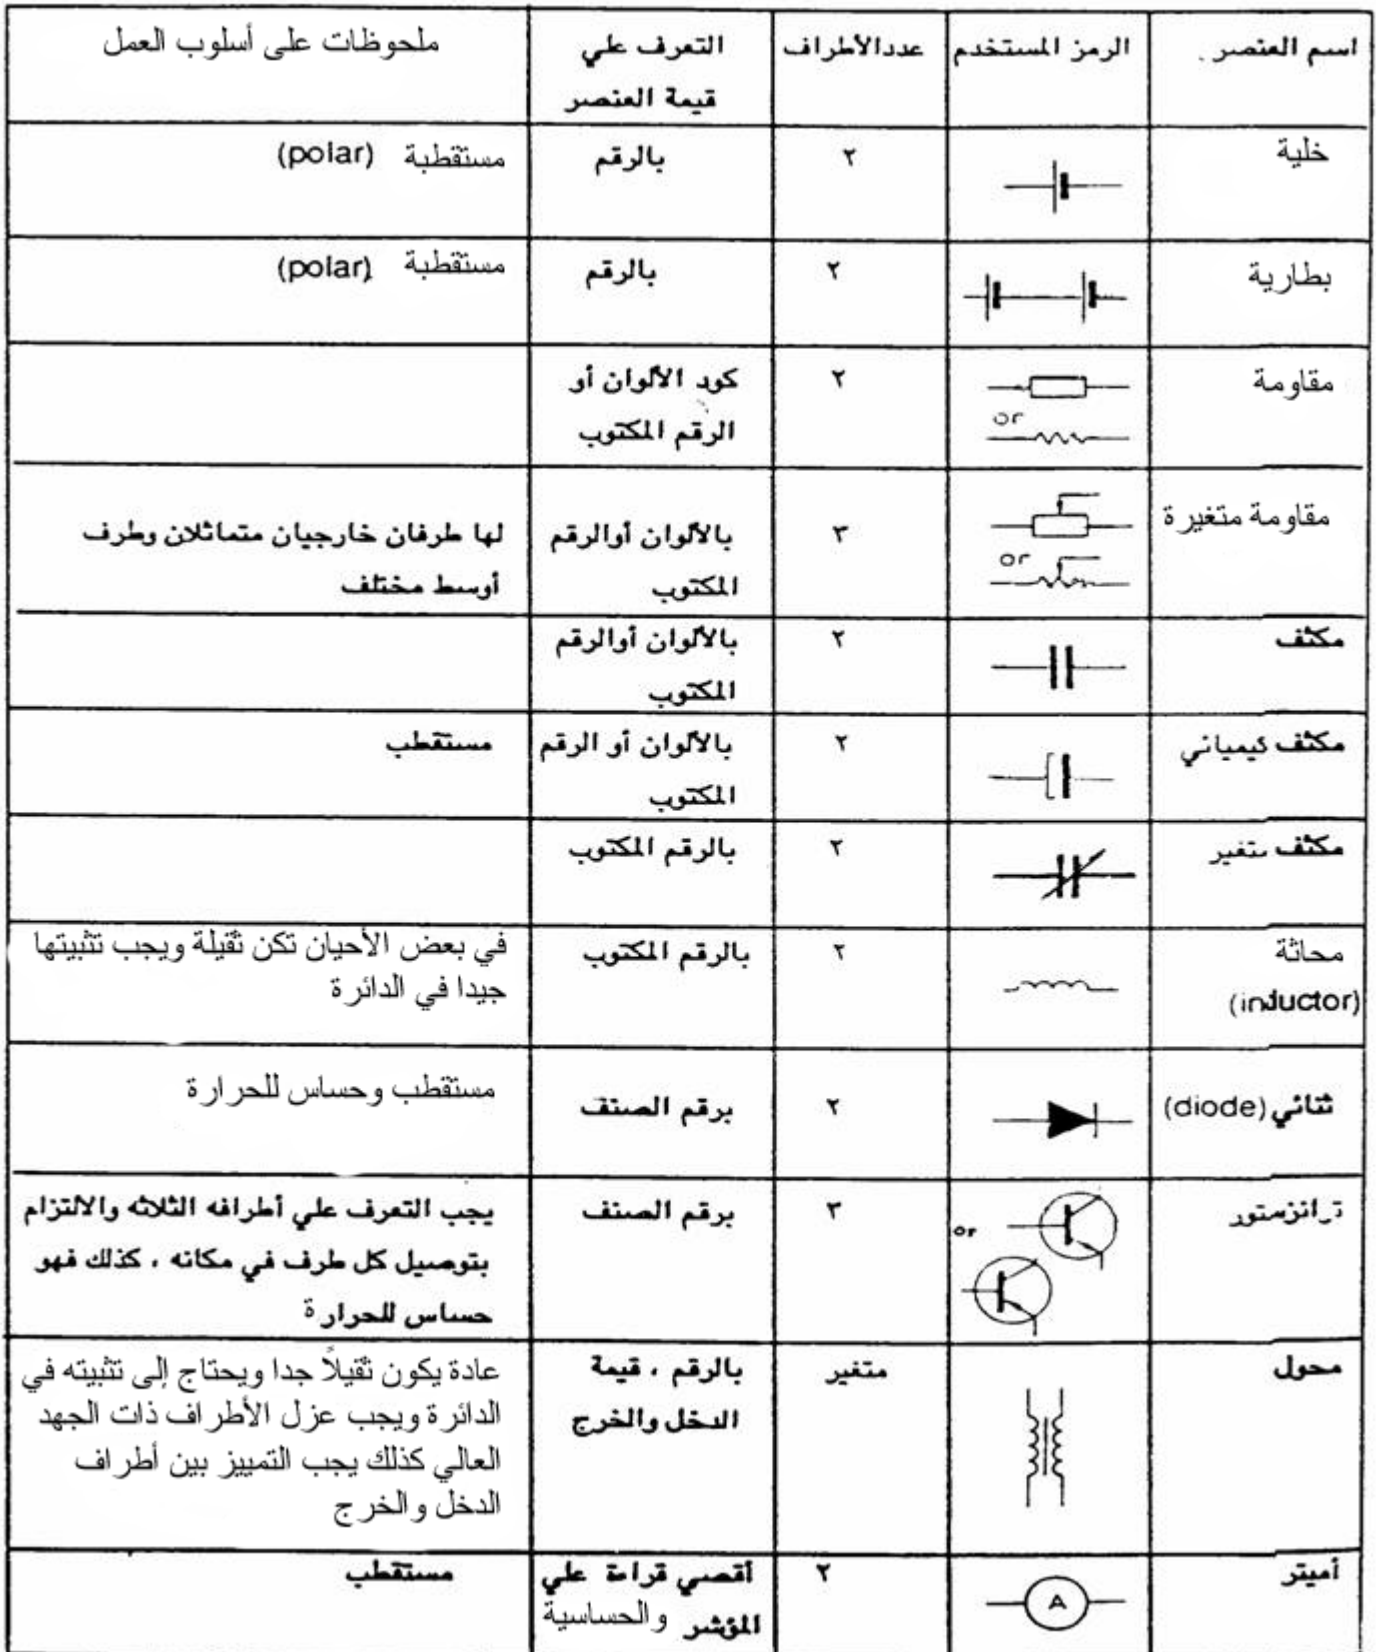 اسم العنصر | الرمز المستخدم | عدد الأطراف | التعرف علي | ملحوظات على أسلوب العمل
قيمة العنصر
خلية | ٢ | بالرقم | مستقطبة (polar)
بطارية | ٢ | بالرقم | مستقطبة (polar)
مقاومة | or | ٢ | كود الألوان أو
الرقم المكتوب
مقاومة متغيرة | or | ٣ | بالألوان أوالرقم | لها طرفان خارجيان متماثلان وطرف
المكتوب | أوسط مختلف
مكثف | ٢ | بالألوان أوالرقم
المكتوب
مكثف كيميائي | ٢ | بالألوان أو الرقم | مستقطب
المكتوب
مكثف متغير | ٢ | بالرقم المكتوب
محاثة | ٢ | بالرقم المكتوب | في بعض الأحيان تكن ثقيلة ويجب تثبيتها
(inductor) | جيدا في الدائرة
ثنائي (diode) | ٢ | برقم الصنف | مستقطب وحساس للحرارة
ترانزستور | or | ٣ | برقم الصنف | يجب التعرف علي أطرافه الثلاثه والالتزام
بتوصيل كل طرف في مكانه ، كذلك فهو
حساس للحرارة
محول | متغير | بالرقم ، قيمة | عادة يكون ثقيلاً جدا ويحتاج إلى تثبيته في
الدخل والخرج | الدائرة ويجب عزل الأطراف ذات الجهد
العالي كذلك يجب التمييز بين أطراف
الدخل والخرج
أميتر | A | ٢ | أقصي قراءة علي | مستقطب
المؤشر والحساسية